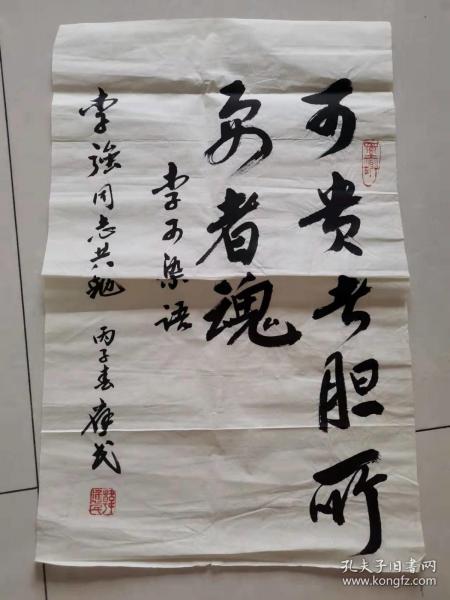 可贵者胆所
要者魂
李可染语
李强同志共勉 丙子春
孔夫子旧书网
www.kongfz.com